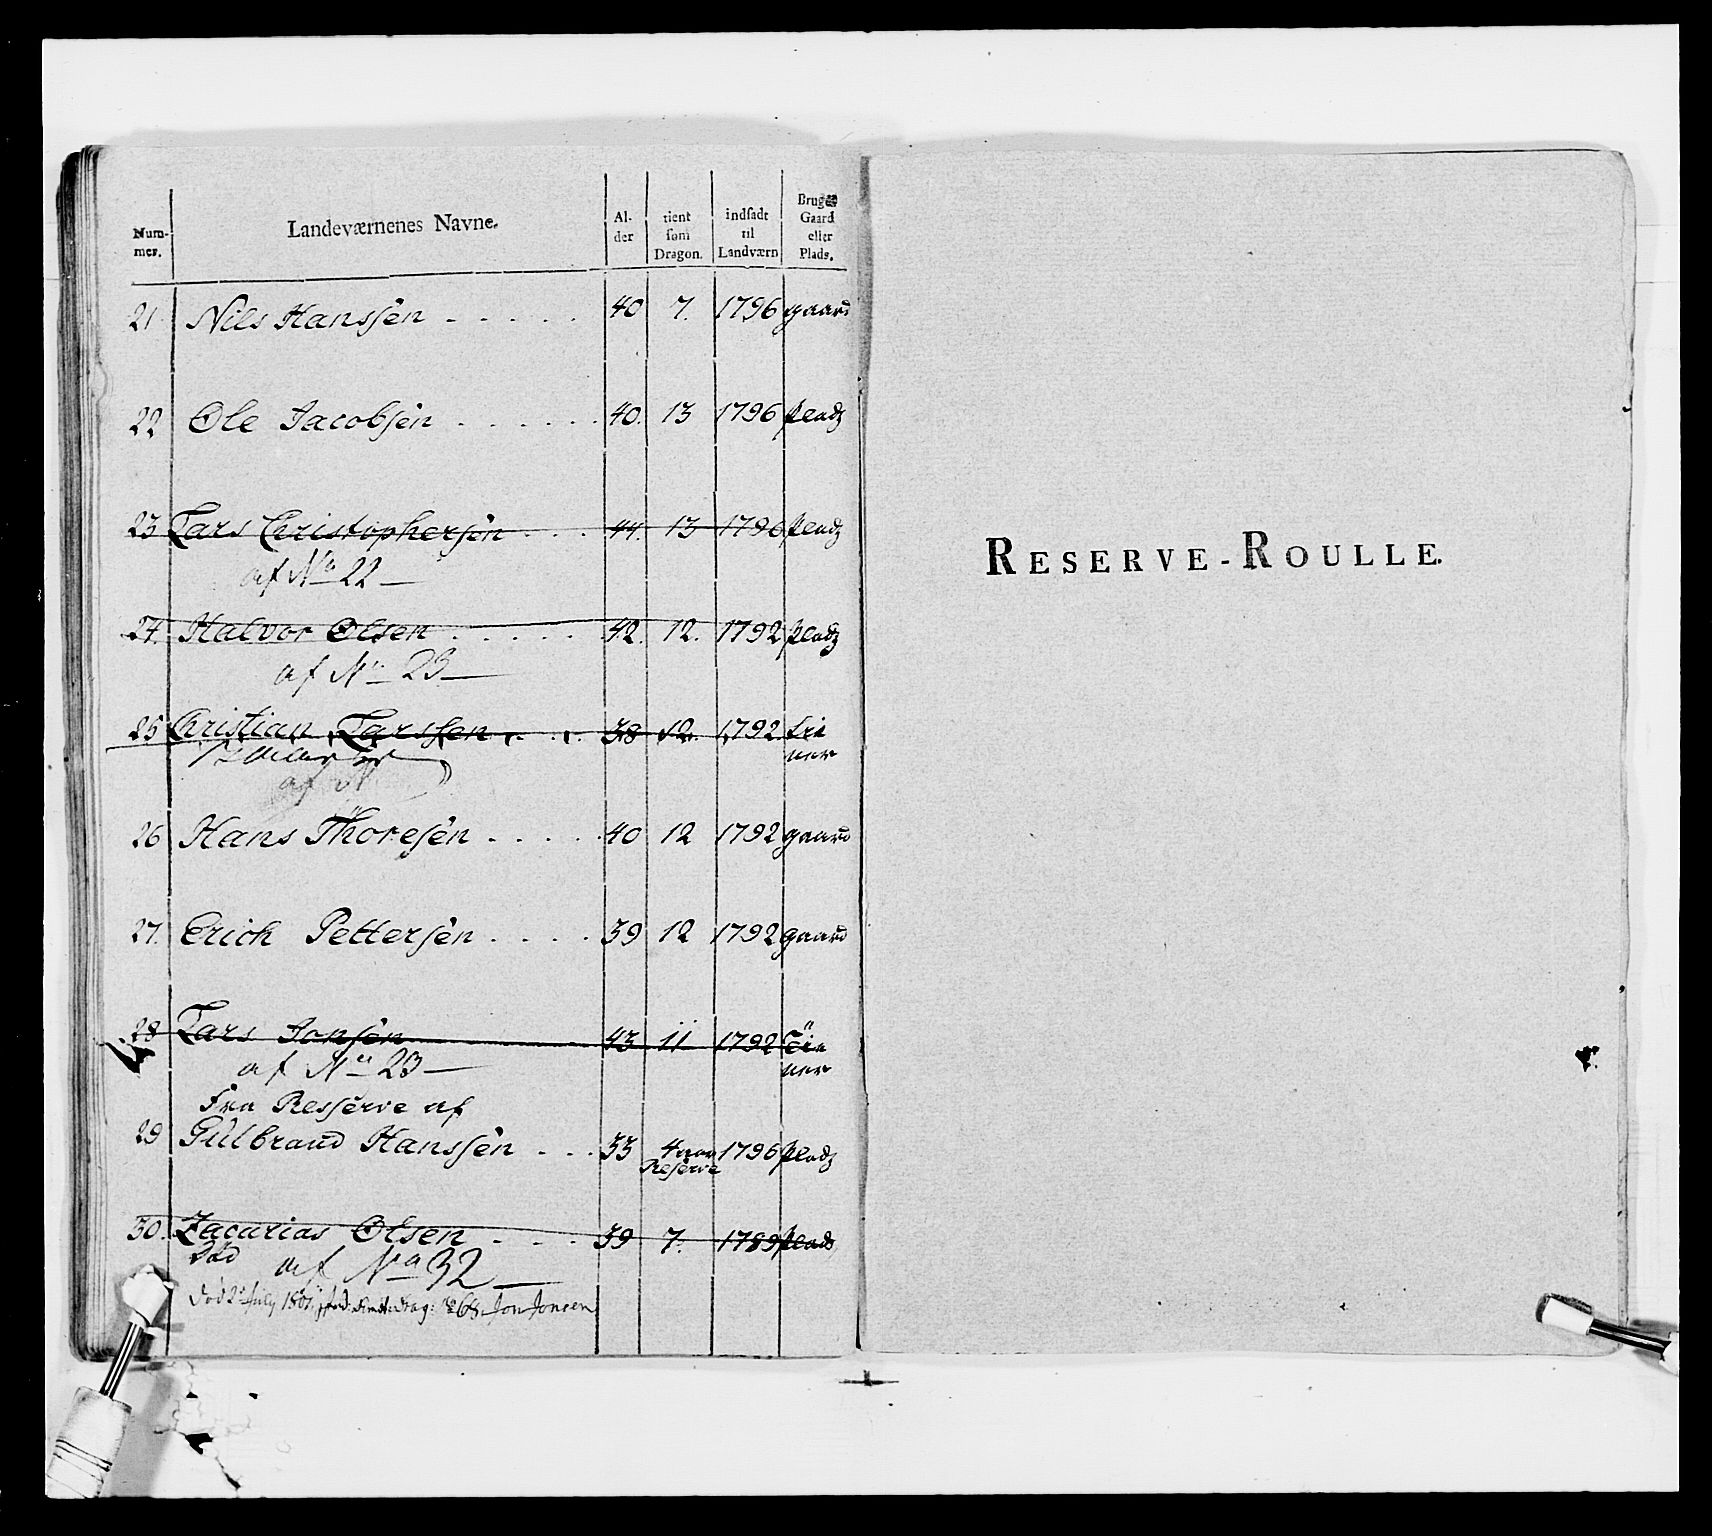 Num-
mer.
Landeværnenes Navne.
Al-
der
tient
som
Dragon.
indsadt
til
Landværn
Brug
Gaard
eller
Plads.
21 Nils Hanssen - - - - - 40 7. 1796 gaard
22 Ole Jacobsen . . . . . . 40. 13 1796 pladz
23 Lars Christophersen . . . 44. 13 1796 pladz
af No 22 —
24. Halvor Olsen . . . . . 42. 12. 1792 pladz
af No 23 —
25 Christian Larssen . . . 38 12. 1792
af N
26 Hans Thoresen . . . . . 40 12 1792 gaard
27. Erich Pettersen . . . . 39 12 1792 gaard
28 Lars Jonsen 43 11 1792
af No 23 —
Fra Resserve af
29 Gulbrand Hanssen . . . 33 4 aar 1796 pladz
Reserve
30. Zacarias Olsen . . . 39 7. 1789 plads
af No 32 —
Død 2 July 1801. Jon Jonsen
RESERVE-ROULLE.